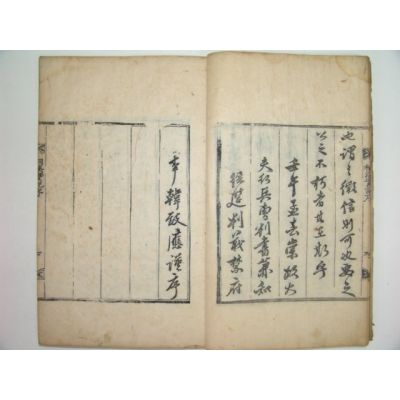 也謂之徵信則可也要之
公之不朽者其在斯乎
壬午孟春崇祿大
夫行兵曹判書兼知
經筵判義禁府
事韓致應謹序